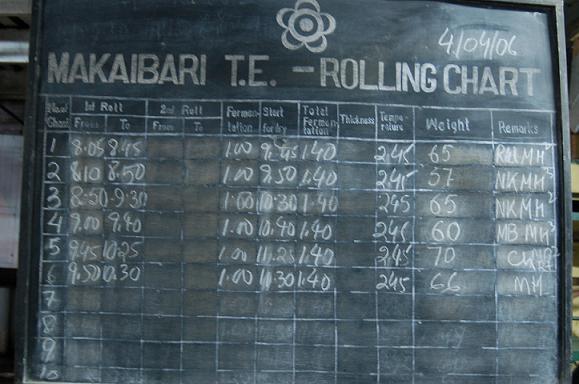 4/04/06
MAKAIBARI T.E. - ROLLING CHART
No. of Charl 1st Roll From To 2nd Roll From To Fermentation Start for dry Total Fermentation Thickness Temperature Weight Remarks
1 8.05 8.45 1.00 9.45 1.40 245 65
2 8.10 8.50 1.00 9.50 1.40 245 57 NKMH
3 8.50 9.30 1.00 10.30 1.40 245 65 NKMH
4 9.00 9.40 1.00 10.40 1.40 245 60 MB MH
5 9.45 10.25 1.00 11.25 1.40 245 70
6 9.50 10.30 1.00 11.30 1.40 245 66 MH
7
8
9
10